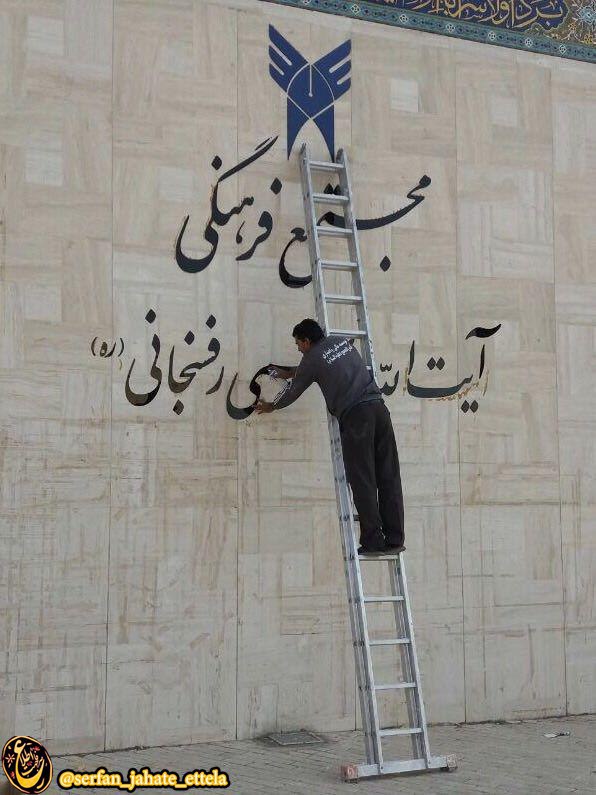 مجتمع فرهنگی
آیت الله
ی رفسنجانی (ره)
@serfan_jahate_ettela